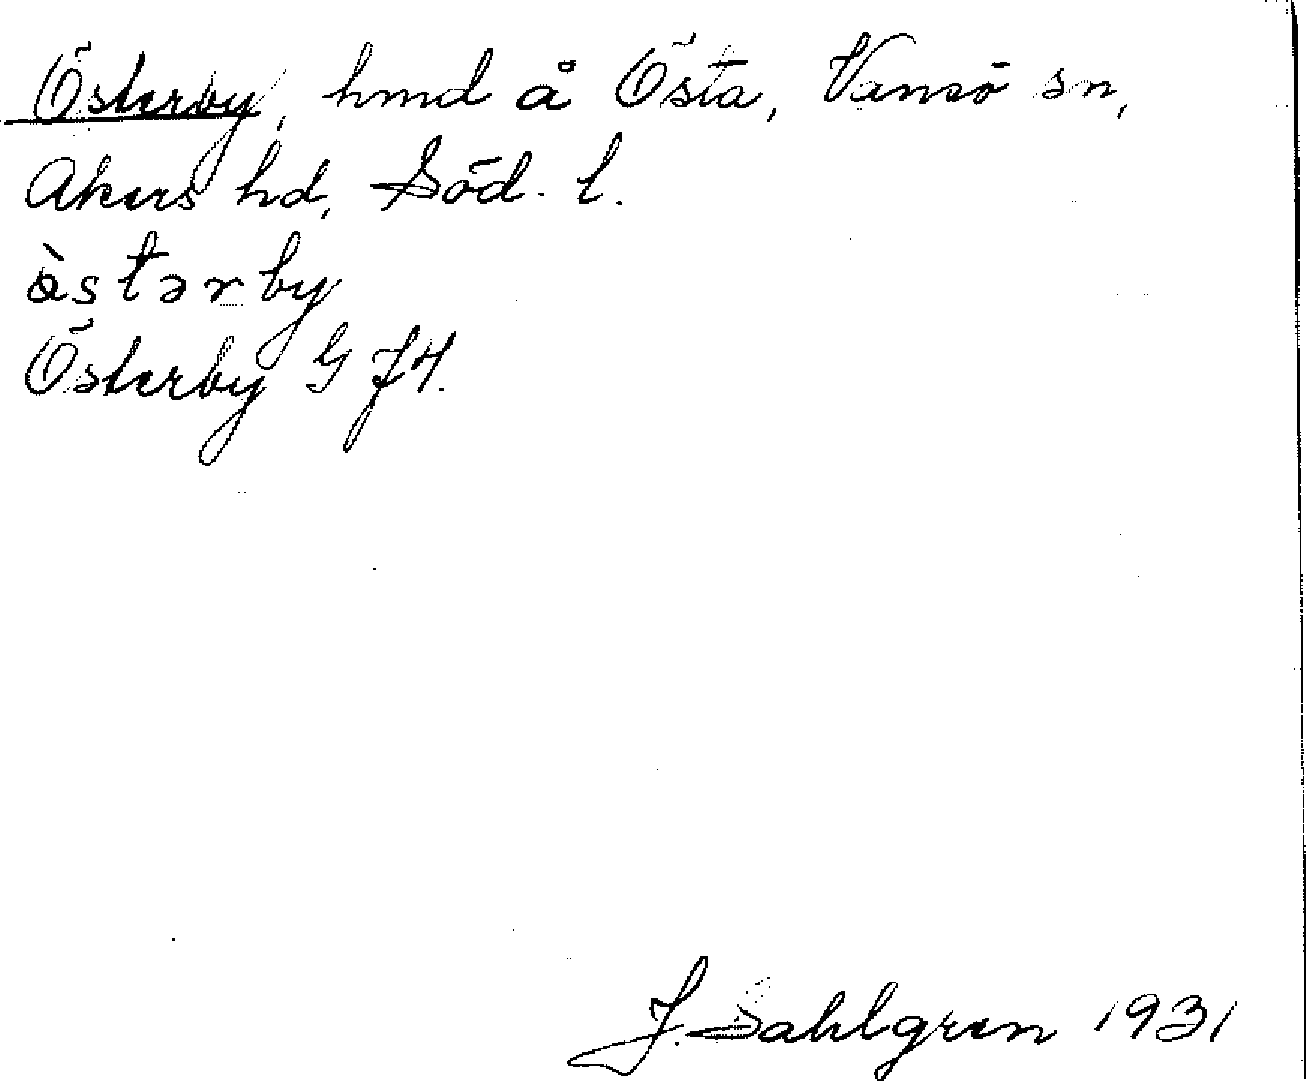 Österby, hmd å Östa, Vansö sn,
Åkers hd, Söd. l.
ə̀stərby
Österby GJ4.
J. Sahlgren 1931